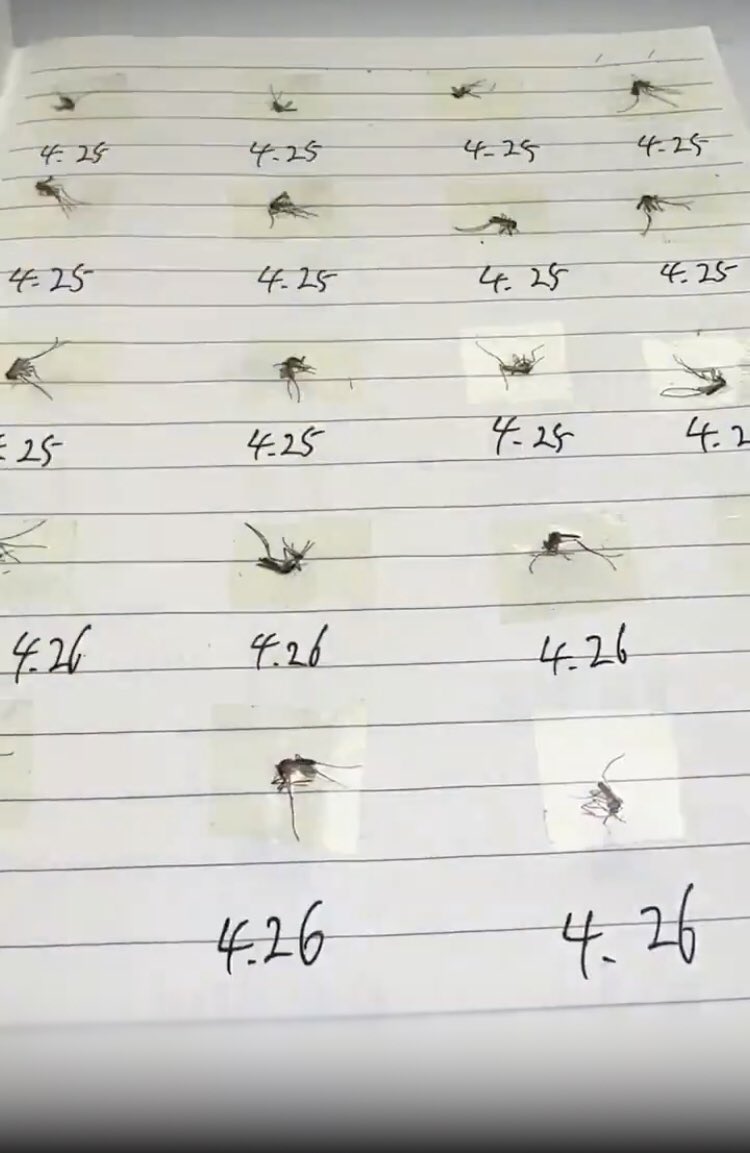 4.25 4.25 4.25 4.25
4.25 4.25 4.25 4.25
25 4.25 4.25 4.2
4.26 4.26 4.26
4.26 4.26